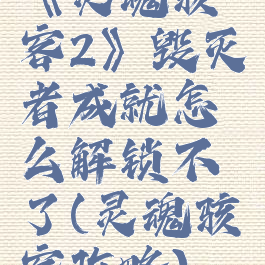 《灵魂骇
客2》毁灭
者成就怎
么解锁不
了(灵魂骇
客攻略)